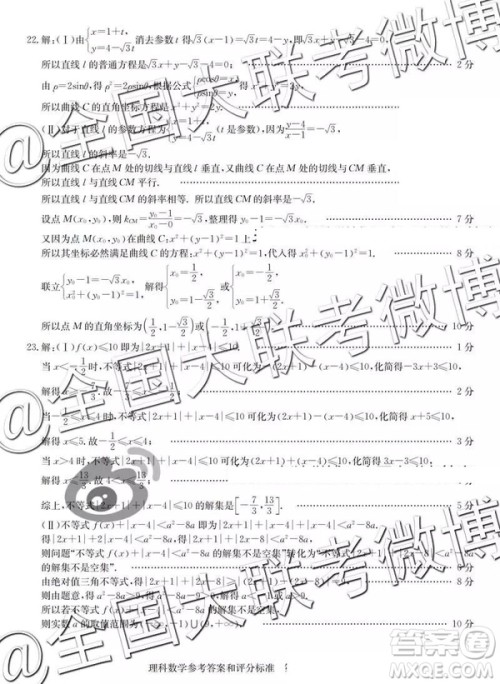 22.解:(Ⅰ)由{x=1+t, y=4-√3t 消去参数t得√3(x-1)=√3t=4-y,即√3x+y-√3-4=0;
所以直线l的普通方程是√3x+y-√3-4=0; 2分
由ρ=2sinθ,得ρ²=2ρsinθ,根据公式
得x²+y²=2y.
所以曲线C的直角坐标方程是x²+y²=2y.
(Ⅱ)对于直线l的参数方程 (t是参数),因为(y-4)/(x-1)=-√3,
所以直线l的斜率是-√3.
因为曲线C在点M处的切线与直线l垂直,又曲线C在点M处的切线与直线CM垂直,
所以直线l与直线CM平行.
所以直线l与直线CM的斜率相等. 所以直线CM的斜率是-√3.
设点M(x₀,y₀),则k_CM=(y₀-1)/(x₀-0)=-√3,整理得y₀-1=-√3x₀. 7分
又因为点M在曲线C:x²+(y-1)²=1上,
所以其坐标必然满足曲线C的方程:x²+(y-1)²=1,代入得x₀²+(y₀-1)²=1. 8分
联立{y₀-1=-√3x₀, x₀²+(y₀-1)²=1, 解得{x₀=1/2, y₀=1-√3/2 或{x₀=-1/2, y₀=1+√3/2.
所以点M的直角坐标为(1/2,1-√3/2)或(-1/2,1+√3/2). 10分
23.解:(Ⅰ)f(x)≤10即为|2x+1|+|x-4|≤10. 1分
当x<-1/2时,不等式|2x+1|+|x-4|≤10可化为-(2x+1)-(x-4)≤10,化简得-3x+3≤10,
解得x≥-7/3,故-7/3≤x<-1/2; 2分
当-1/2≤x≤4时,不等式|2x+1|+|x-4|≤10可化为(2x+1)-(x-4)≤10,化简得x+5≤10,
解得x≤5,故-1/2≤x≤4; 3分
当x>4时,不等式|2x+1|+|x-4|≤10可化为(2x+1)+(x-4)≤10,化简得3x-3≤10,
解得x≤13/3,故4<x≤13/3.
综上,不等式|2x+1|+|x-4|≤10的解集是[-7/3,13/3]. 5分
(Ⅱ)不等式f(x)+|x-4|<a²-8a即为|2x+1|+|x-4|+|x-4|<a²-8a,
得|2x+1|+|2x-8|<a²-8a,
则问题“不等式f(x)+|x-4|<a²-8a的解集不是空集”转化为“不等式|2x+1|+|2x-8|<a²-8a
的解集不是空集”. 6分
由绝对值三角不等式,得|2x+1|+|2x-8|≥ 8分
则由题意,得a²-8a>9,解得a<-1或a>9.
所以若不等式f(x)+|x-4|<a²-8a的解集不是空集,
则实数a的取值范围是(-∞,-1)∪(9,+∞). 10分
理科数学参考答案和评分标准
@全国大联考微博
@全国大联考微博
@全国大联考微博
作业帮
MXQE.COM